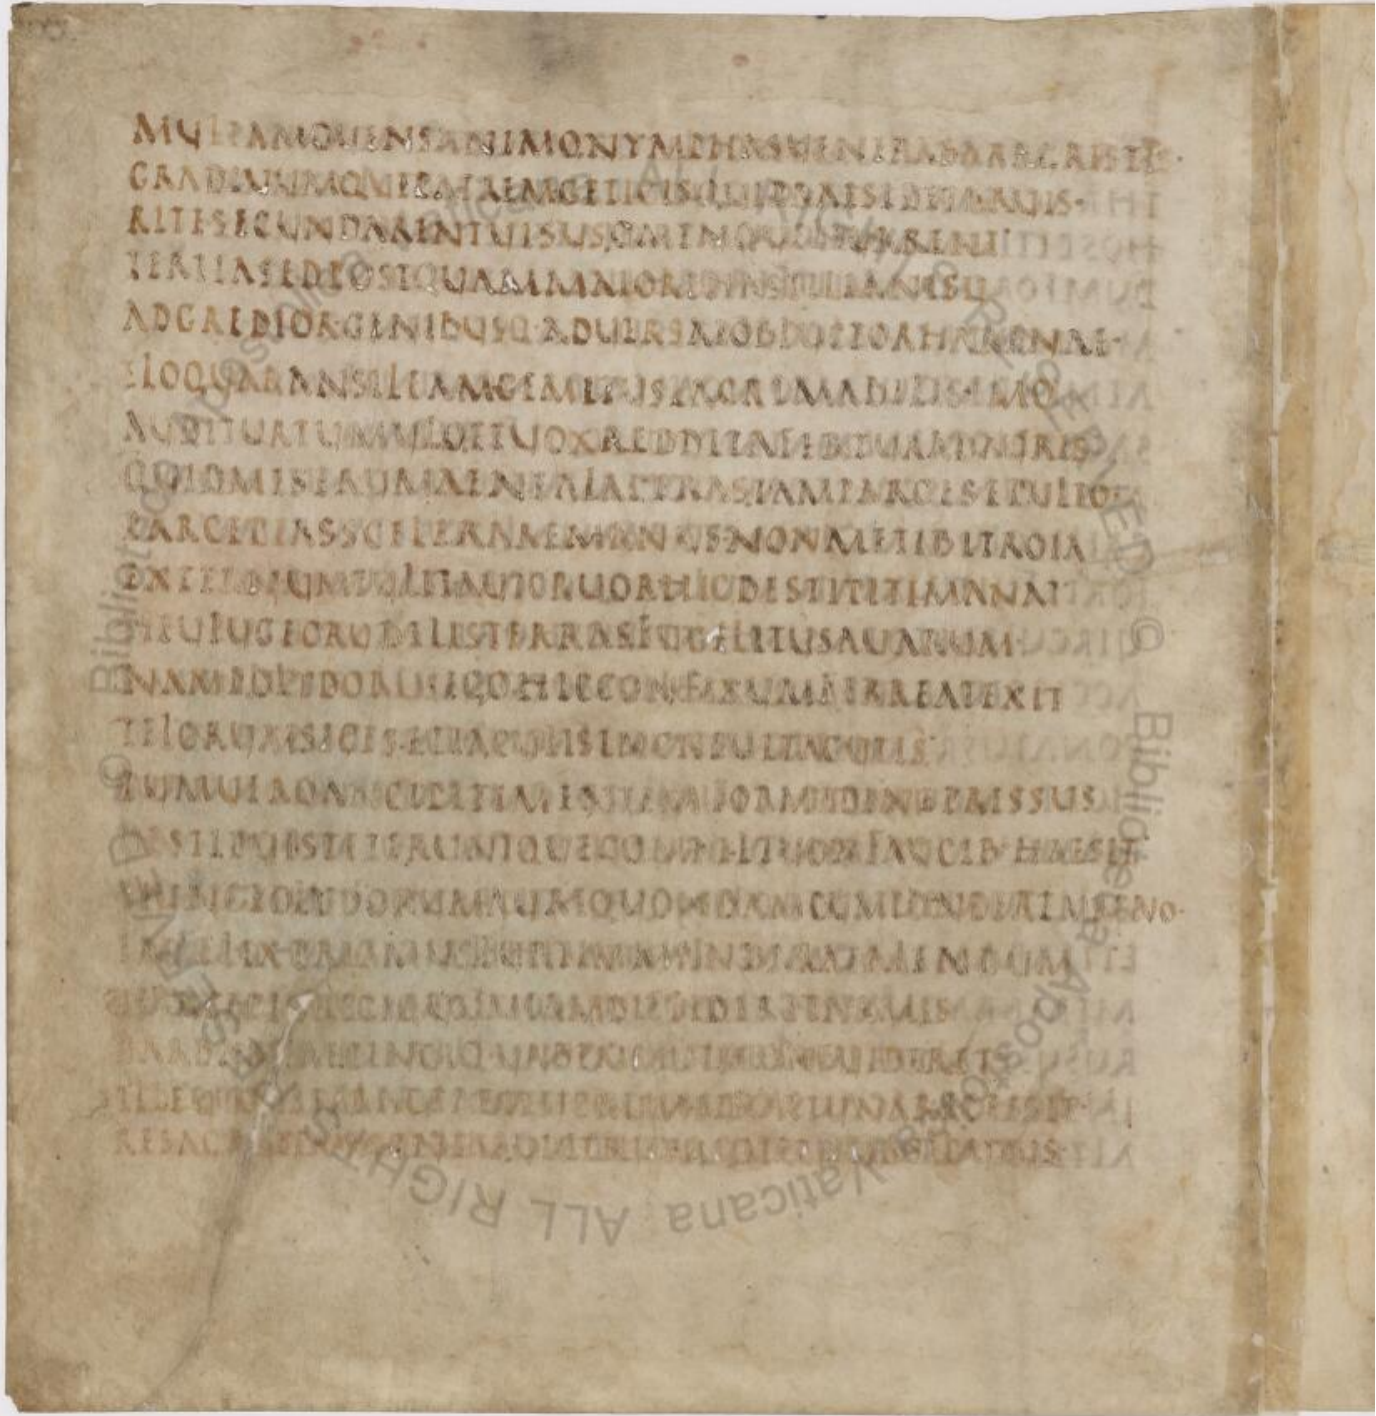 MULTAMOVENSANIMONYMPHASVENERABARAGRESTIS·
GRADIVUMQUEPATREMGETICISQUIPRAESIDETARVIS·
RITESECUNDARENTVISUSOMENQUELEVARENT
TERTIASEDPOSTQUAMMAIOREHASTILIANISU
ADGREDIORGENIBUSQ·ADVERSAEOBLUCTORHARENAE·
ELOQUARANSILEAMGEMITUSLACRIMABILISIMO
AUDITURTUMULOETVOXREDDITAFERTURADAURIS
QUIDMISERUMAENEALACERASIAMPARCESEPULTO
PARCEPIASSCELERAREMANUSNONMETIBITROIA
EXTERNUMTULITAUTCRUORHICDESTIPITEMANAT
HEUFUGECRUDELISTERRASFUGELITUSAVARUM·
NAMPOLYDORUSEGOHICCONFIXUMFERREATEXIT
TELORUMSEGESETIACULISINCREVITACUTIS
TUMVEROANCIPITIMENTEMFORMIDINEPRESSUS
OBSTIPUISTETERUNTQUECOMAEETVOXFAUCIB·HAESIT
HUNCPOLYDORUMAURIQUONDAMCUMPONDEREMAGNO·
INFELIXPRIAMUSFURTIMMANDARATALENDUM
THREICIOREGICUMIAMDIFFIDERETARMIS
DARDANIAECINGIQUEURBEMOBSIDIONEVIDERET
ILLEUTOPESFRACTAETEUCRUMETFORTUNARECESSIT
RESAGA